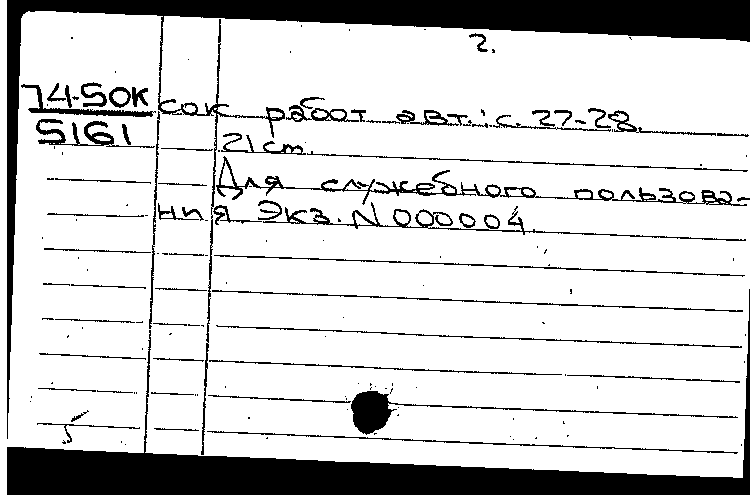 2.
74-50К сок работ авт.: с. 27-28.
5161 21 cm.
Для служебного пользова-
ния Экз. N 000004.
5